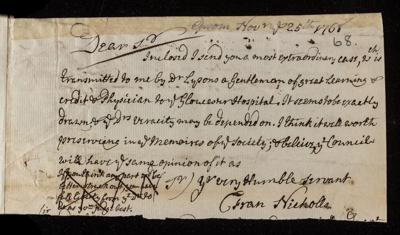 Epsom Novr. ye 25th 1768
68.
Dear Sr.
Inclos'd I send you a most extraordinary case, wch. is
transmitted to me by Dr Lysons a Gentleman of great Learning &
credit & Physician to ye Gloucester Hospital. It seems to be exactly
drawn & ye Drs veracity may be depended on. I think it well worth
preserving in ye Memoires of ye Society; & believe ye Council
will have ye same opinion of it as
Sr) yr very Humble Servant
Fran Nicholls
if you think any part to be
best.
Sir